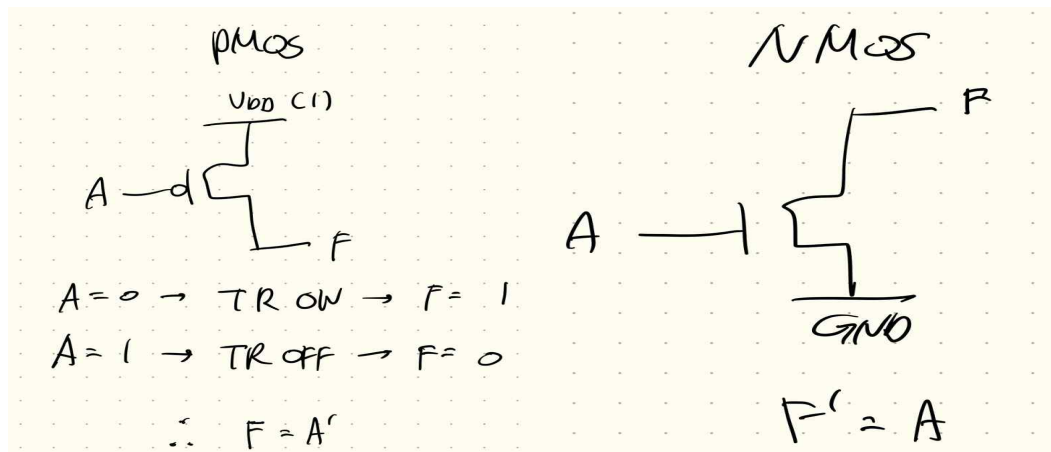 PMOS
VDD (1)
A
F
A = 0 → TR ON → F = 1
A = 1 → TR OFF → F = 0
∴ F = A'
NMOS
F
A
GND
F' = A